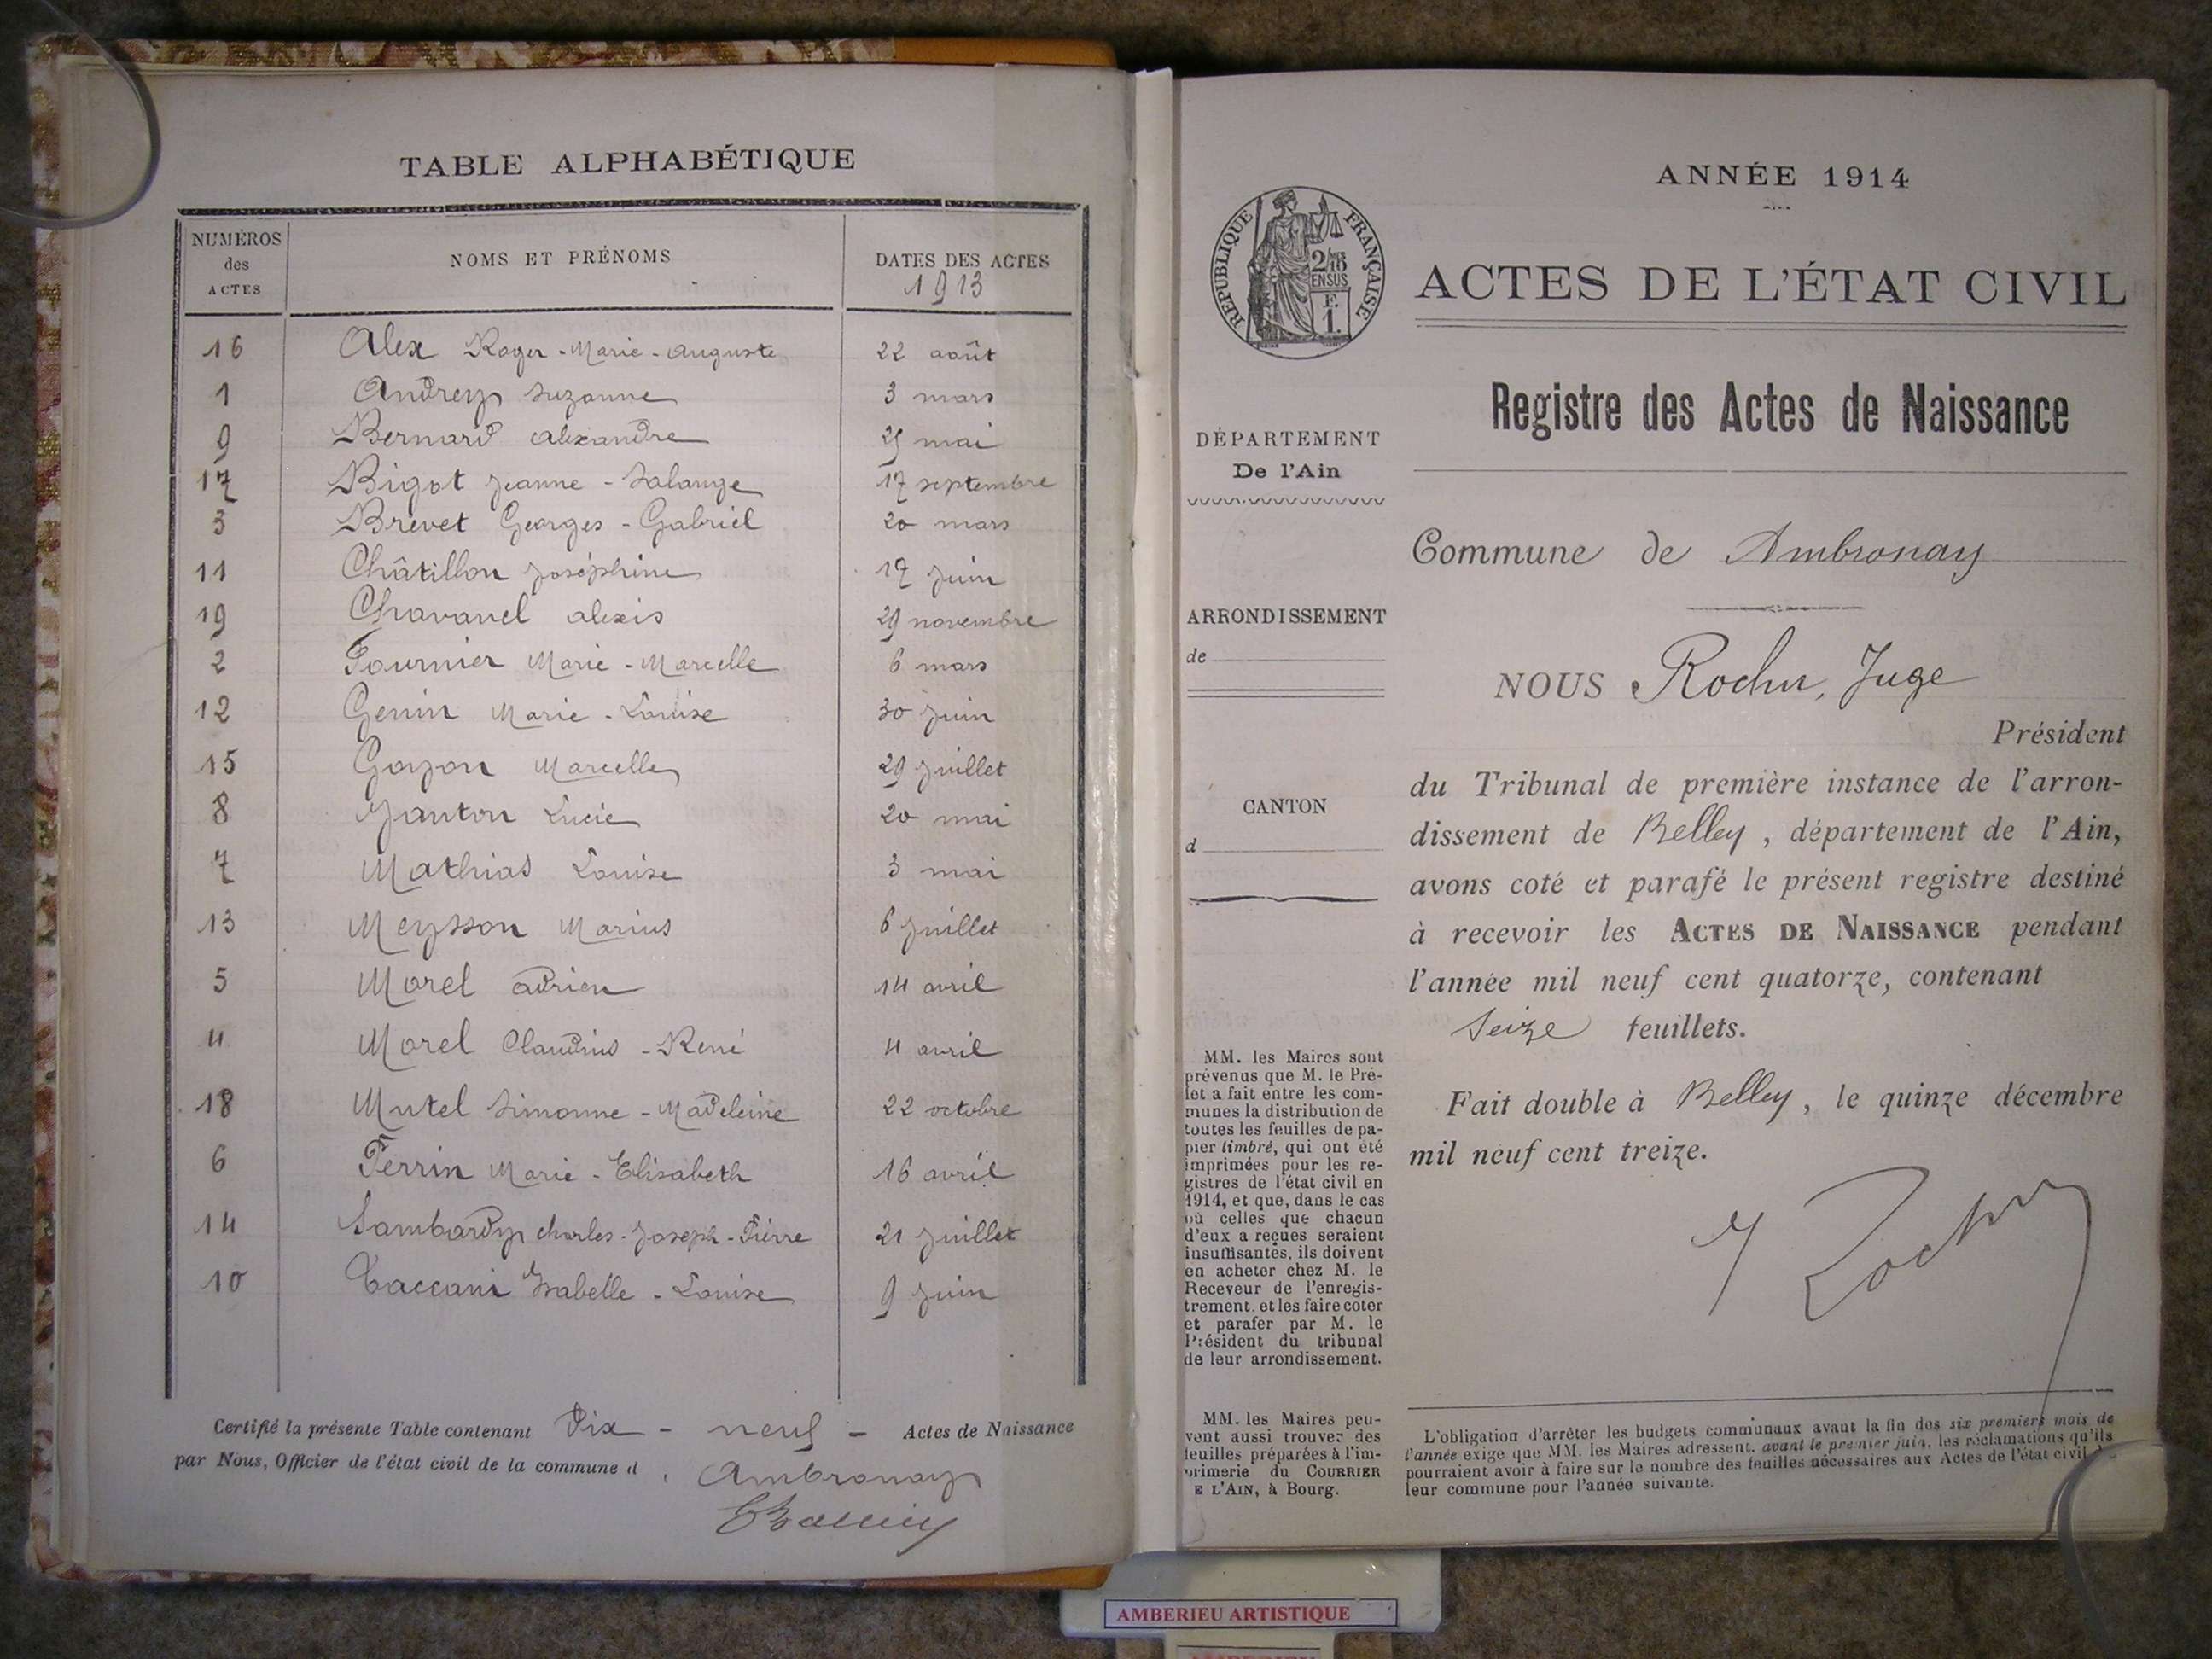 TABLE ALPHABÉTIQUE
NUMÉROS des ACTES NOMS ET PRÉNOMS DATES DES ACTES 1913
16 Alex Roger-Marie-Auguste 22 août
1 Andrey Suzanne 3 mars
9 Bernard Alexandre 25 mai
17 Bigot Jeanne-Solange 17 septembre
3 Brevet Georges-Gabriel 20 mars
11 Châtillon Joséphine 17 Juin
19 Chavanel Alexis 29 novembre
2 Fournier Marie-Marcelle 6 mars
12 Genin Marie-Louise 30 Juin
15 Goyon Marcelle 29 Juillet
8 Janton Lucie 20 mai
7 Mathias Louise 3 mai
13 Meysson Marius 6 Juillet
5 Morel Adrien 14 avril
4 Morel Claudius-René 4 avril
18 Mutel Simonne-Madeleine 22 octobre
6 Perrin Marie-Elisabeth 16 avril
14 Sambardy Charles-Joseph-Pierre 21 Juillet
10 Taccani Isabelle-Louise 9 Juin
Certifié la présente Table contenant Dix-neuf - Actes de Naissance
par Nous, Officier de l'état civil de la commune d Ambronay
ANNÉE 1914
RÉPUBLIQUE FRANÇAISE
2/10 EN SUS
F.
1.
ACTES DE L'ÉTAT CIVIL
Registre des Actes de Naissance
DÉPARTEMENT
De l'Ain
Commune de Ambronay
ARRONDISSEMENT
de
NOUS Rochu, Juge
Président
CANTON
d
du Tribunal de première instance de l'arron-
dissement de Belley, département de l'Ain,
avons coté et parafé le présent registre destiné
à recevoir les ACTES DE NAISSANCE pendant
l'année mil neuf cent quatorze, contenant
Seize feuillets.
Fait double à Belley, le quinze décembre
mil neuf cent treize.
MM. les Maires sont
prévenus que M. le Pré-
fet a fait entre les com-
munes la distribution de
toutes les feuilles de pa-
pier timbré, qui ont été
imprimées pour les re-
gistres de l'état civil en
1914, et que, dans le cas
où celles que chacun
d'eux a reçues seraient
insuffisantes, ils doivent
en acheter chez M. le
Receveur de l'enregis-
trement, et les faire coter
et parafer par M. le
Président du tribunal
de leur arrondissement.
MM. les Maires peu-
vent aussi trouver des
feuilles préparées à l'im-
primerie du COURRIER
E L'AIN, à Bourg.
L'obligation d'arrêter les budgets communaux avant la fin des six premiers mois de
l'année exige que MM. les Maires adressent, avant le premier juin, les réclamations qu'ils
pourraient avoir à faire sur le nombre des feuilles nécessaires aux Actes de l'état civil de
leur commune pour l'année suivante.
AMBERIEU ARTISTIQUE